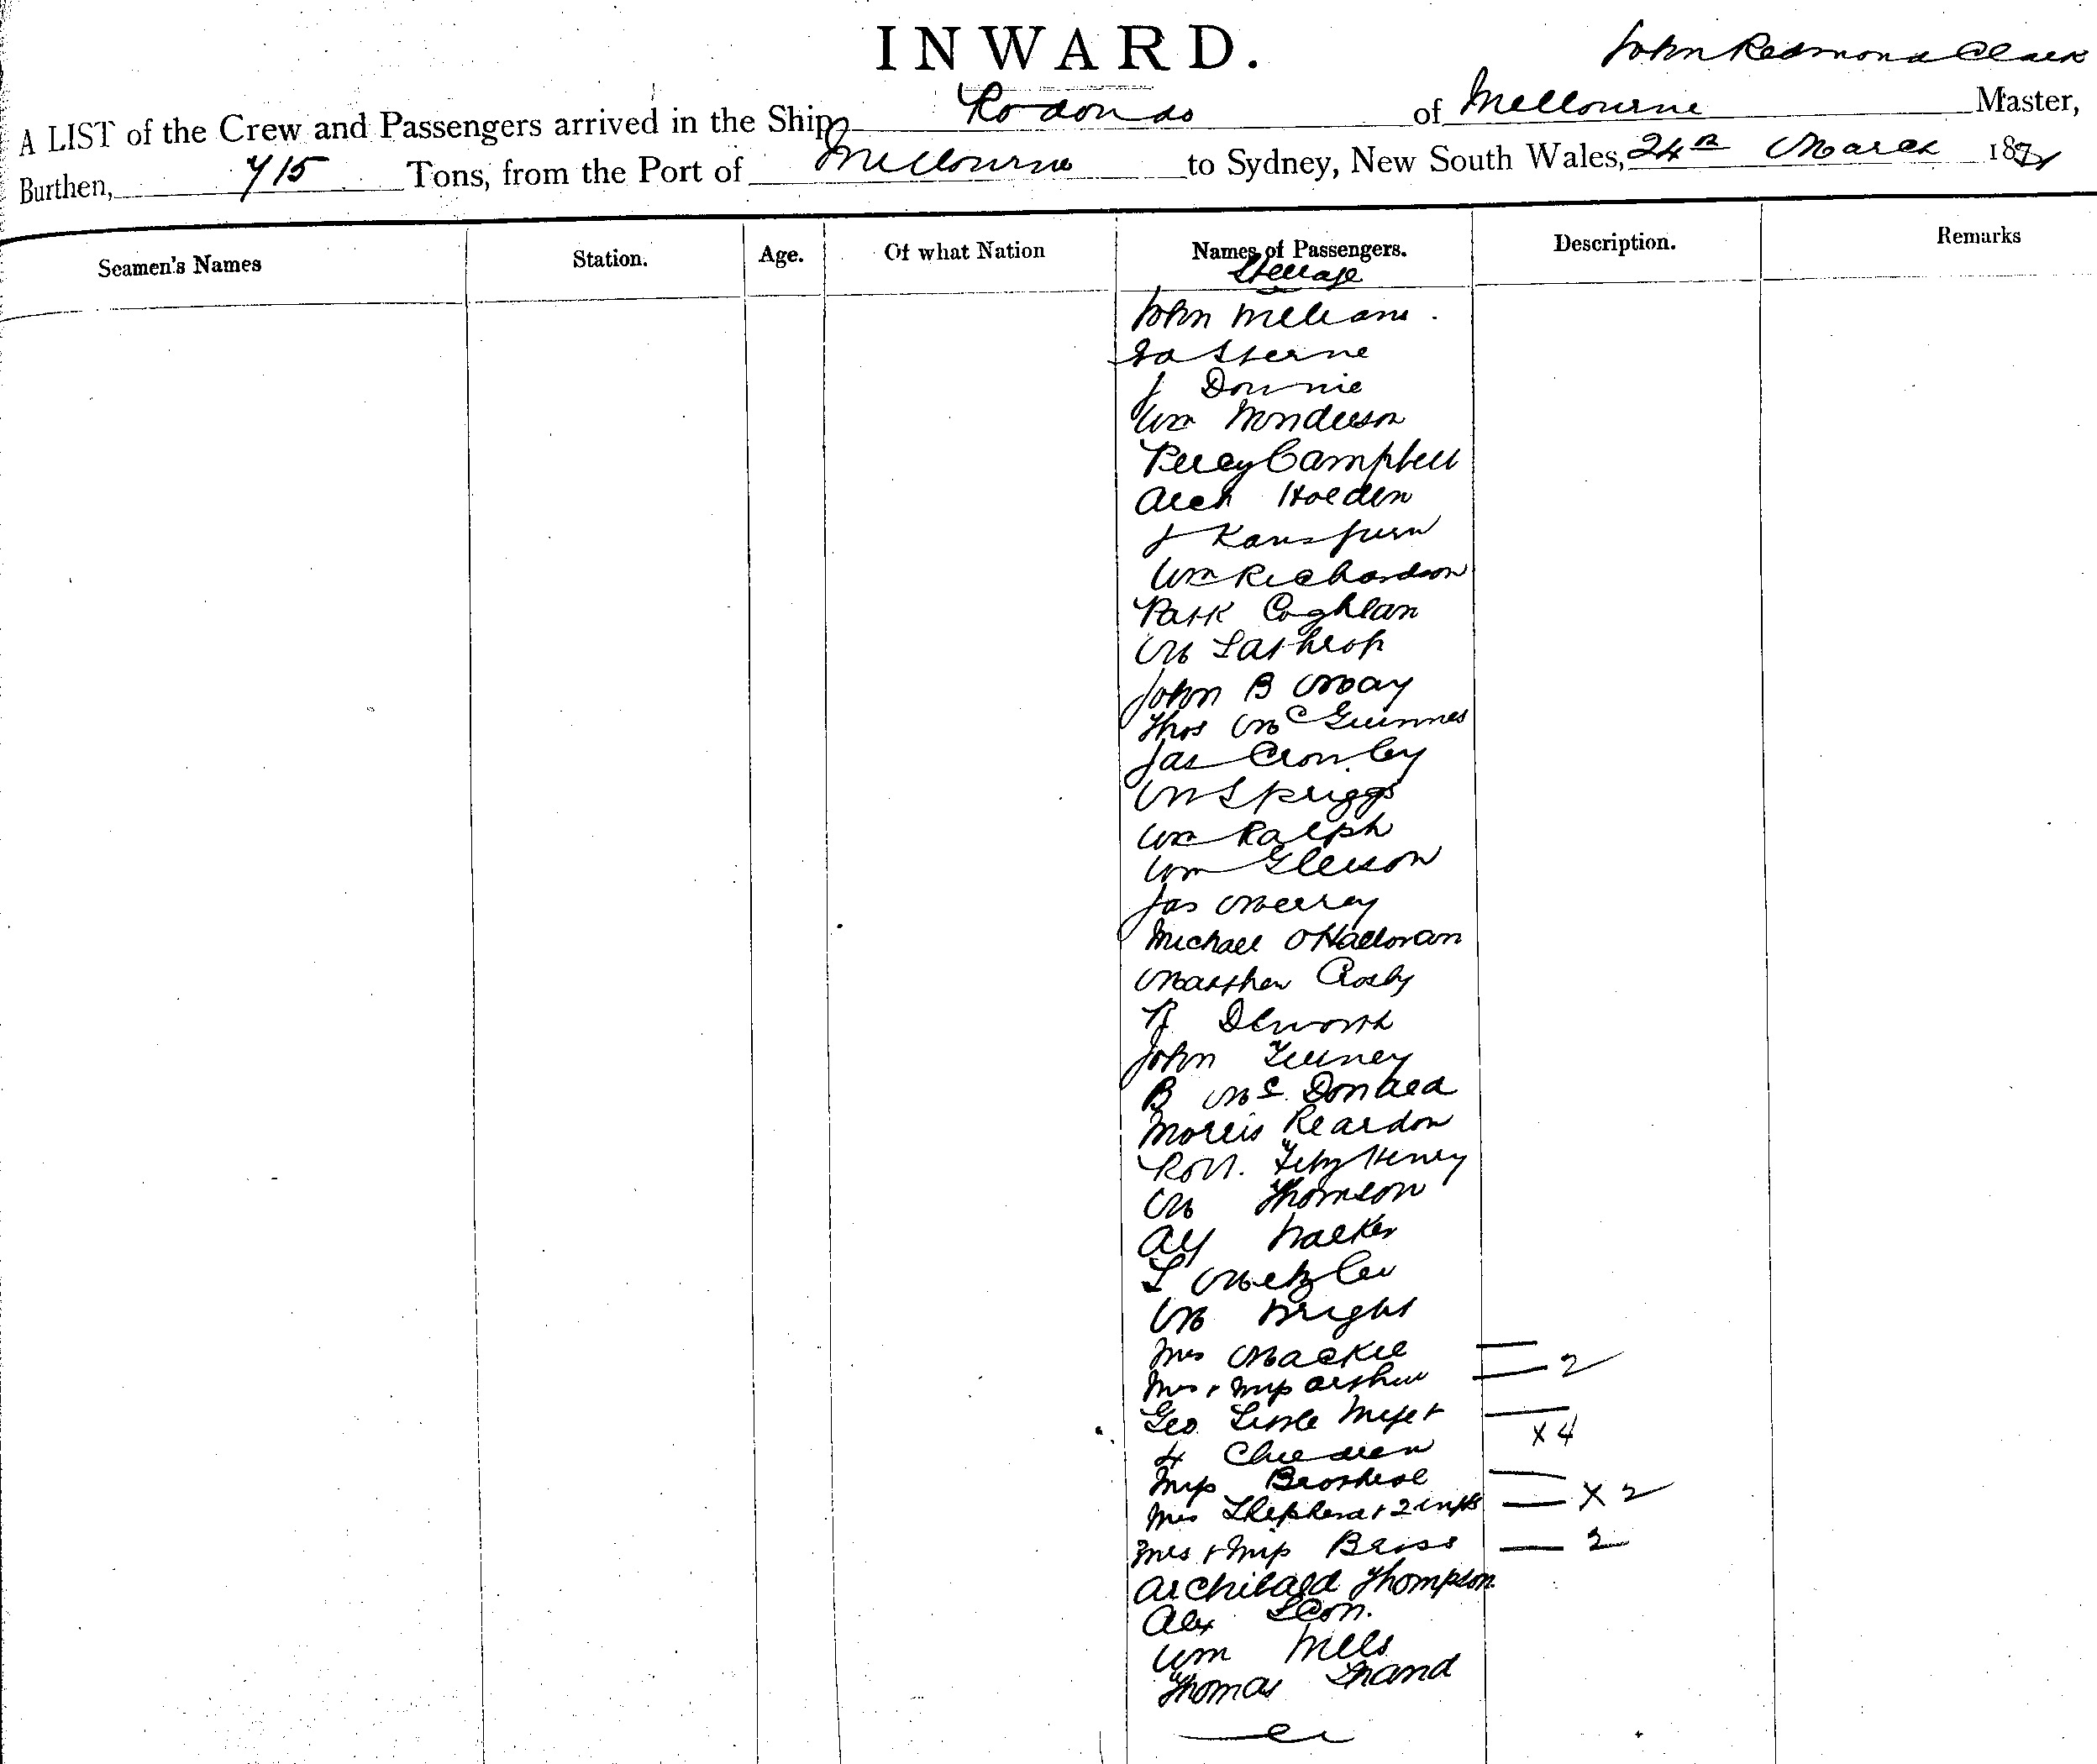 INWARD.
John Redmond Clark
A LIST of the Crew and Passengers arrived in the Ship Rodondo of Melbourne Master,
Burthen, 715 Tons, from the Port of Melbourne to Sydney, New South Wales, 24th March 18
Seamen's Names Station. Age. Of what Nation Names of Passengers. Description. Remarks
Steerage
John Williams.
Sterne
J Downie
Wm Wonderson
Percy Campbell
Arch Holden
J
Wm Richardson
Patk Coghlan
M Lathrop
John B May
Thos McGuinnes
Jas Crowley
M Spriggs
Wm Ralph
Wm Gleeson
Jas Merray
Michael O'Halloran
Matthew Crosby
R Dlworth
John Feeney
B McDonald
Morris Reardon
Robt. FitzHenry
M Thomson
Alf Walker
L Metzler
M Wright
Mrs Mackie —
Mrs + Miss Arthur — 2
Geo Little Wife + —
4 Children x 4
Miss —
Mrs Shepherd + 2 infts — x 2
Mrs + Miss Beiss — 2
Archibald Thompson
Alex Leon.
Wm Wills
Thomas